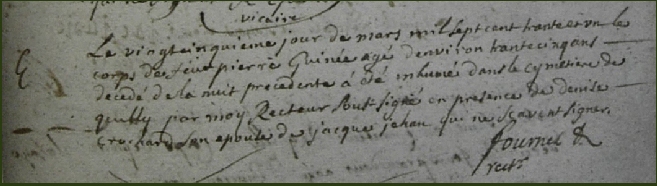 vicaire
Le vingtcinquieme jour de mars mil sept cent trante et un le
corps de feu pierre Guinée agé denviron trante cinq ans
décédé de la nuit precedente á été inhumé dans le cymetiere de
par moy Recteur soussigné en presence de denise
crochard son epouse de jacque jehan qui ne scavent signer.
fournel
rectr